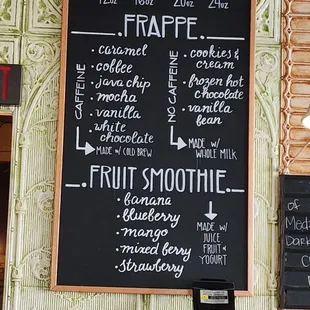 12oz 16oz 20oz 24oz
FRAPPE
CAFFEINE
caramel
coffee
java chip
mocha
vanilla
white
chocolate
MADE W/ COLD BREW
NO CAFFEINE
cookies &
cream
frozen hot
chocolate
vanilla
bean
MADE W/
WHOLE MILK
FRUIT SMOOTHIE
banana
blueberry
mango
mixed berry
strawberry
MADE W/
JUICE
FRUIT &
YOGURT
of
Dark